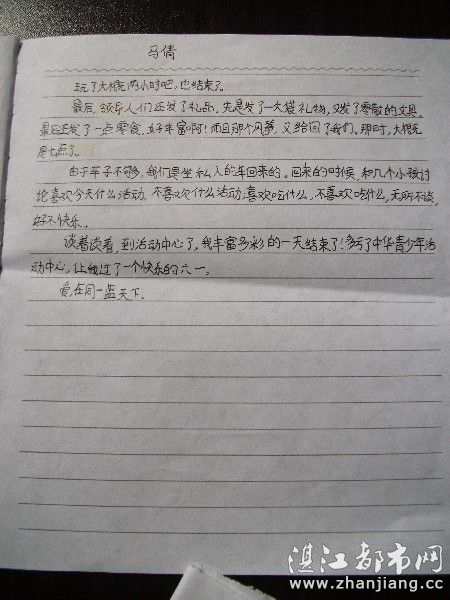 马倩
玩了大概两小时吧,也结束了。
最后,领导人们还发了礼品,先是发了一大袋礼物,又发了零散的文具,
最后还发了一点零食,好丰富啊!而且那个风筝,又给回了我们,那时,大概元
是七点了。
由于车子不够,我们是坐私人的车回来的,回来的时候,和几个小孩讨
论喜欢今天什么活动,不喜欢什么活动,喜欢吃什么,不喜欢吃什么,无所不谈,
好不快乐。
谈着谈着到活动中心了,我丰富多彩的一天结束了!多亏了中华青少年活
动中心,让我过了一个快乐的六一。
爱,在同一蓝天下。
湛江都市网
www.zhanjiang.cc